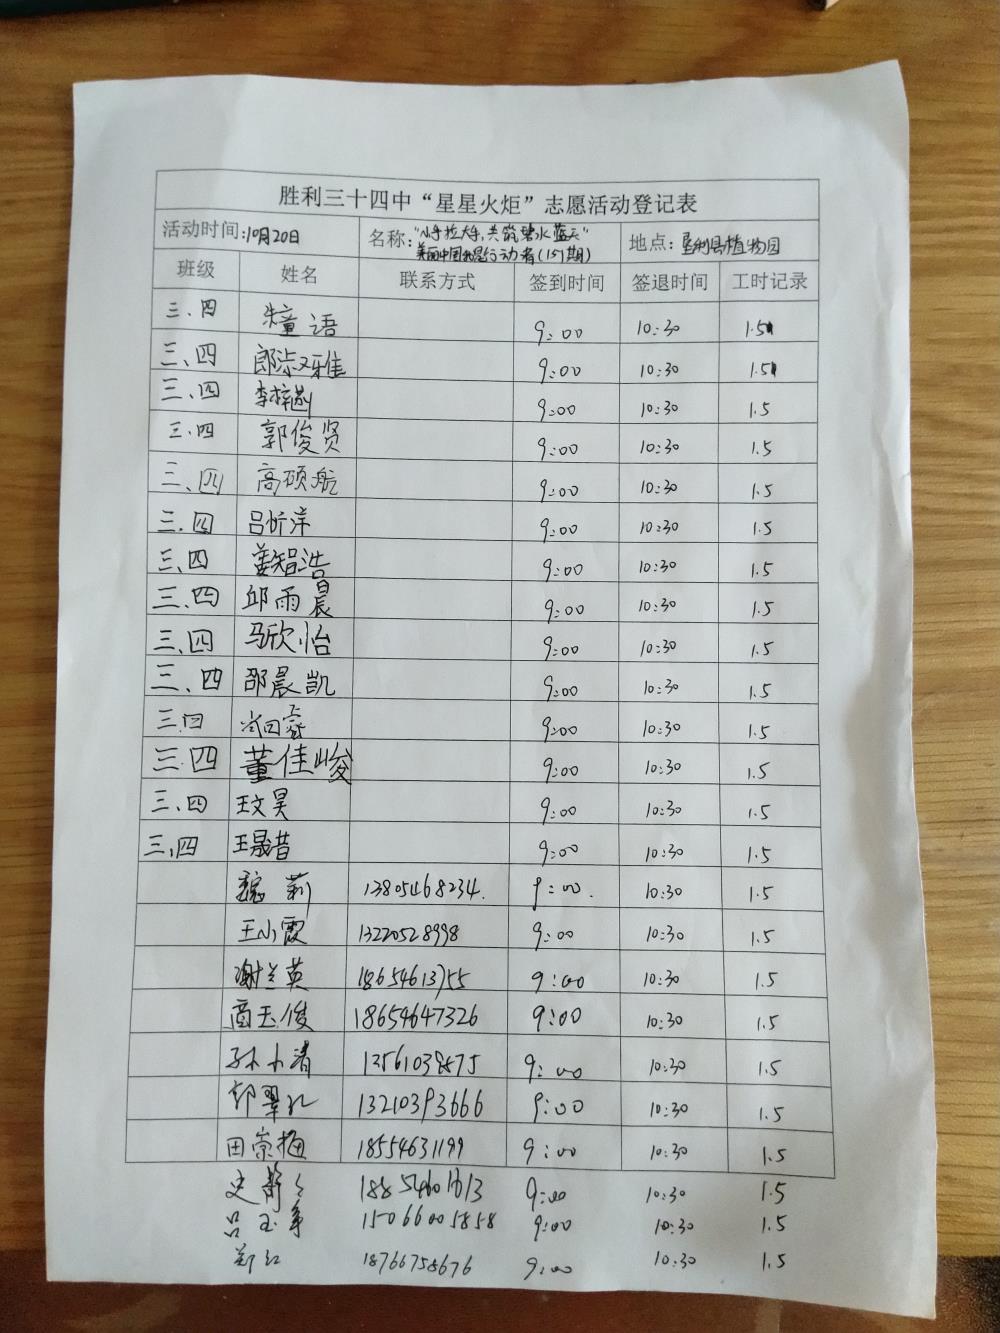 胜利三十四中“星星火炬”志愿活动登记表
活动时间:10月20日 名称:“小手拉大手,共筑碧水蓝天” 美丽中国我是行动者(151期) 地点:垦利县植物园
班级 姓名 联系方式 签到时间 签退时间 工时记录
三.四 朱童语 9:00 10:30 1.5
三.四 郎 雅 9:00 10:30 1.5
三.四 李梓 9:00 10:30 1.5
三.四 郭俊贤 9:00 10:30 1.5
三、四 高硕航 9:00 10:30 1.5
三.四 吕忻洋 9:00 10:30 1.5
三.四 姜智浩 9:00 10:30 1.5
三.四 邱雨晨 9:00 10:30 1.5
三.四 马欣怡 9:00 10:30 1.5
三.四 邵晨凯 9:00 10:30 1.5
三.四 9:00 10:30 1.5
三.四 董佳峻 9:00 10:30 1.5
三.四 王文昊 9:00 10:30 1.5
三.四 王晟昔 9:00 10:30 1.5
魏莉 13805468234. 9:00. 10:30 1.5
王小霞 13220528998 9:00 10:30 1.5
谢兰英 18654613755 9:00 10:30 1.5
商玉俊 18654647326 9:00 10:30 1.5
孙小清 9:00 10:30 1.5
郭翠 13210393666 9:00 10:30 1.5
田崇梅 18554631199 9:00 10:30 1.5
史 9:00 10:30 1.5
吕玉 15066005858 9:00 10:30 1.5
郑红 18766758676 9:00 10:30 1.5